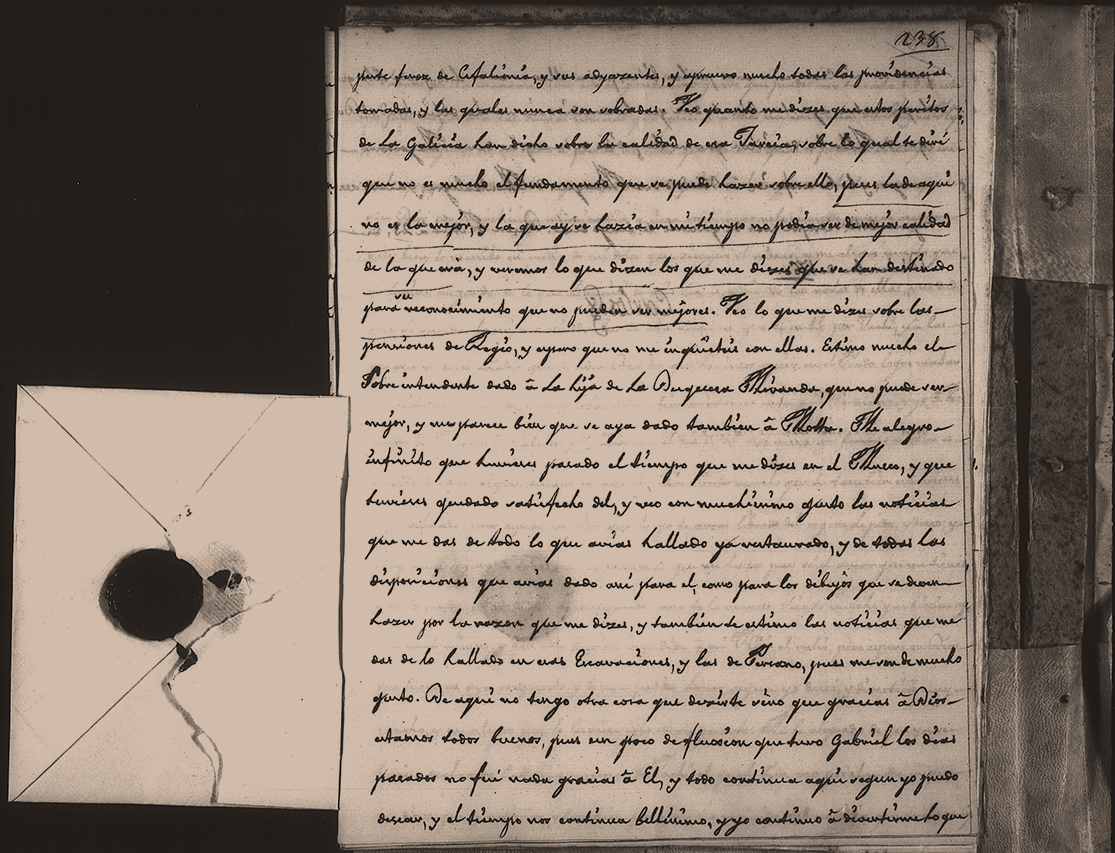 238
peste feroz de Cefalionia, y sus adyazentes, y apruevo mucho todas las providencias
tomadas, y las quales nunca son sobradas. Veo quanto me dizes que estos peritos
de La Galicia han dicho sobre la calidad de esa sobre lo qual te diré
que no es mucho el fundamento que se puede hazer sobre ello, pues la de aqui
no es la mejor, y la que ay se hazia en mi tiempo no podia ser de mejor calidad
de la que era, y veremos lo que dizen los que me dizes que se han destinado
para su reconocimiento que no pueden ser mejores. Veo lo que me dizes sobre las
pensiones de Regio, y espero que no me inquieteis con ellas. Estimo mucho el
Sobreintendente dado â La hija de La Duquesa Miranda, que no puede ser
mejor, y me parece bien que se aya dado tambien â Motta. Me alegro
infinito que huvieses pasado el tiempo que me dizes en el Museo, y que
huvieses quedado satisfecho del, y veo con muchisimo gusto las noticias
que me das de todo lo que avias hallado ya restaurado, y de todas las
disposiciones que avias dado asi para el, como para los dibujos que se deven
hazer por la razon que me dizes, y tambien te estimo las noticias que me
das de lo hallado en esas Escavaciones, y las de pues me son de mucho
gusto. De aqui no tengo otra cosa que dezirte sino que gracias â Dios
estamos todos buenos, pues un poco de flucion que tuvo Gabriel los dias
pasados no fué nada gracias â El, y todo continua aqui segun yo puedo
desear, y el tiempo nos continua bellisimo, y yo continuo â divertirme lo que